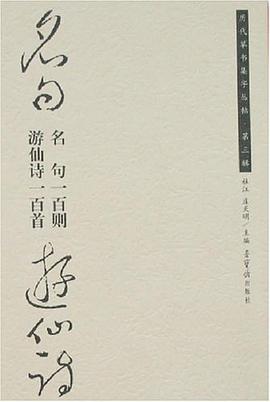 名句
遊仙詩
名句一百则
游仙诗一百首
历代草书集字丛帖·第三辑
江 庄天明/主编 荣宝斋出版社